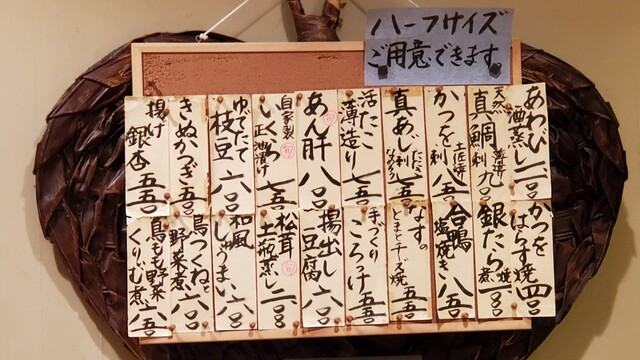 ハーフサイズ
ご用意できます。
あわび
酒蒸し
二〇〇
天然
真鯛
薄造り
刺
九〇
かつを
土佐造り
刺
八五
真あじ
たたき
刺
なめろう
七五
活たこ
薄造り
七五
あん肝
八〇
自家製
いくら
正油漬け
七五
ゆでたて
枝豆
六〇
きぬかつぎ
五五
揚げ
銀杏
五五
かつを
はらす焼
四〇
銀だら
焼
煮
一〇〇
合鴨
塩焼き
八五
なすの
とまとチーズ焼
五五
手づくり
ころっけ
五五
揚出し
豆腐
六〇
松茸
土瓶蒸し
一〇〇
和風
しゅうまい
六〇
鳥つくねと
野菜煮
六〇
鳥もも野菜
くりぃむ煮
六五